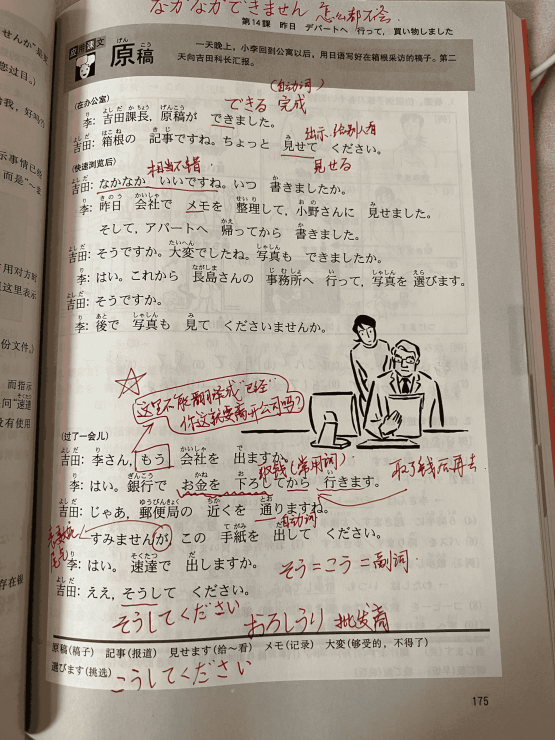 なかなかできません 怎么都不会
第14課 昨日 デパートへ 行って，買い物しました
应用课文 原稿
一天晚上，小李回到公寓以后，用日语写好在箱根采访的稿子。第二
天向吉田科长汇报。
(在办公室)
(自动词)
できる 完成
李：吉田課長，原稿が できました。
吉田：箱根の 記事ですね。ちょっと 見せて ください。
(快速浏览后)
相当不错
見せる
吉田：なかなか いいですね。いつ 書きましたか。
李：昨日 会社で メモを 整理して，小野さんに 見せました。
そして，アパートへ 帰ってから 書きました。
吉田：そうですか。大変でしたね。写真も できましたか。
李：はい。これから 長島さんの 事務所へ 行って，写真を 選びます。
吉田：そうですか。
李：後で 写真も 見て くださいませんか。
这里不能翻译成“已经”
你这就要离开公司吗？
(过了一会儿)
吉田：李さん，もう 会社を 出ますか。
取钱(常用词)
取了钱后再去
李：はい。銀行で お金を 下ろしてから 行きます。
吉田：じゃあ，郵便局の 近くを 通りますね。
自动词
すみませんが，この 手紙を 出して ください。
李：はい。速達で 出しますか。
そう＝こう＝副词
吉田：ええ，そうして ください。
そうしてください
おろしうり 批发商
原稿(稿子) 記事(报道) 見せます(给～看) メモ(记录) 大変(够受的，不得了)
選びます(挑选)
こうしてください
175